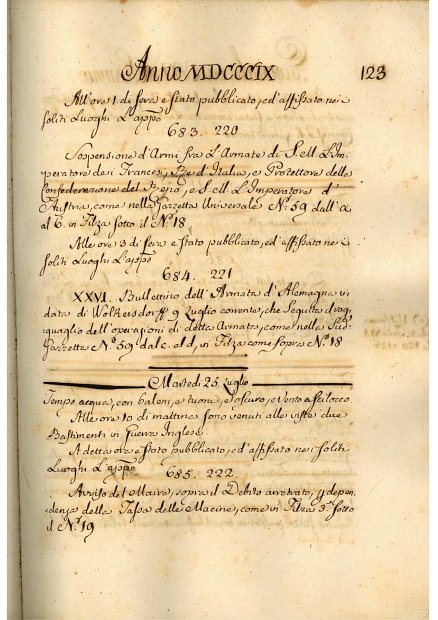 Anno MDCCCIX 123
All'ore 1. di sera è stato pubblicato, ed'affissato nei
soliti Luoghi L'appo
683. 220
Sospensione d'Armi fra L'Armate di S. ell. L'Im-
peratore dei Francesi, Re d'Italia, e Protettore della
Confederazione del Reno, e S. ell. L'Imperatore d'
Austria, come nella Gazzetta Universale N.º 59 dall'a
al b. in Filza sotto il N.º 18
Alle ore 3 di sera è stato pubblicato, ed affissato nei
soliti Luoghi L'appo
684. 221
XXVI. Bullettino dell'Armata d'Alemagna in
data di Wolkersdorff 9 Luglio corrente, che seguita il rag-
guaglio dell'operazioni di detta Armata, come nella Sud.
Gazzetta N.º 59 dal c. al d, in Filza come sopra N.º 18
Martedi 25. Luglio
Tempo acqua, con baleni, e tuoni, e oscuro, e vento a scilocco.
Alle ore 10 di mattina sono venuti alle vista due
Bastimenti in Guerra Inglese
A detta ore è stato pubblicato, ed'affissato nei soliti
Luoghi L'appo
685. 222.
Avviso del Maire, sopra il Debito arretrato, depen-
denza della Tassa delle Macine, come in Filza 3.ª sotto
il N.º 19